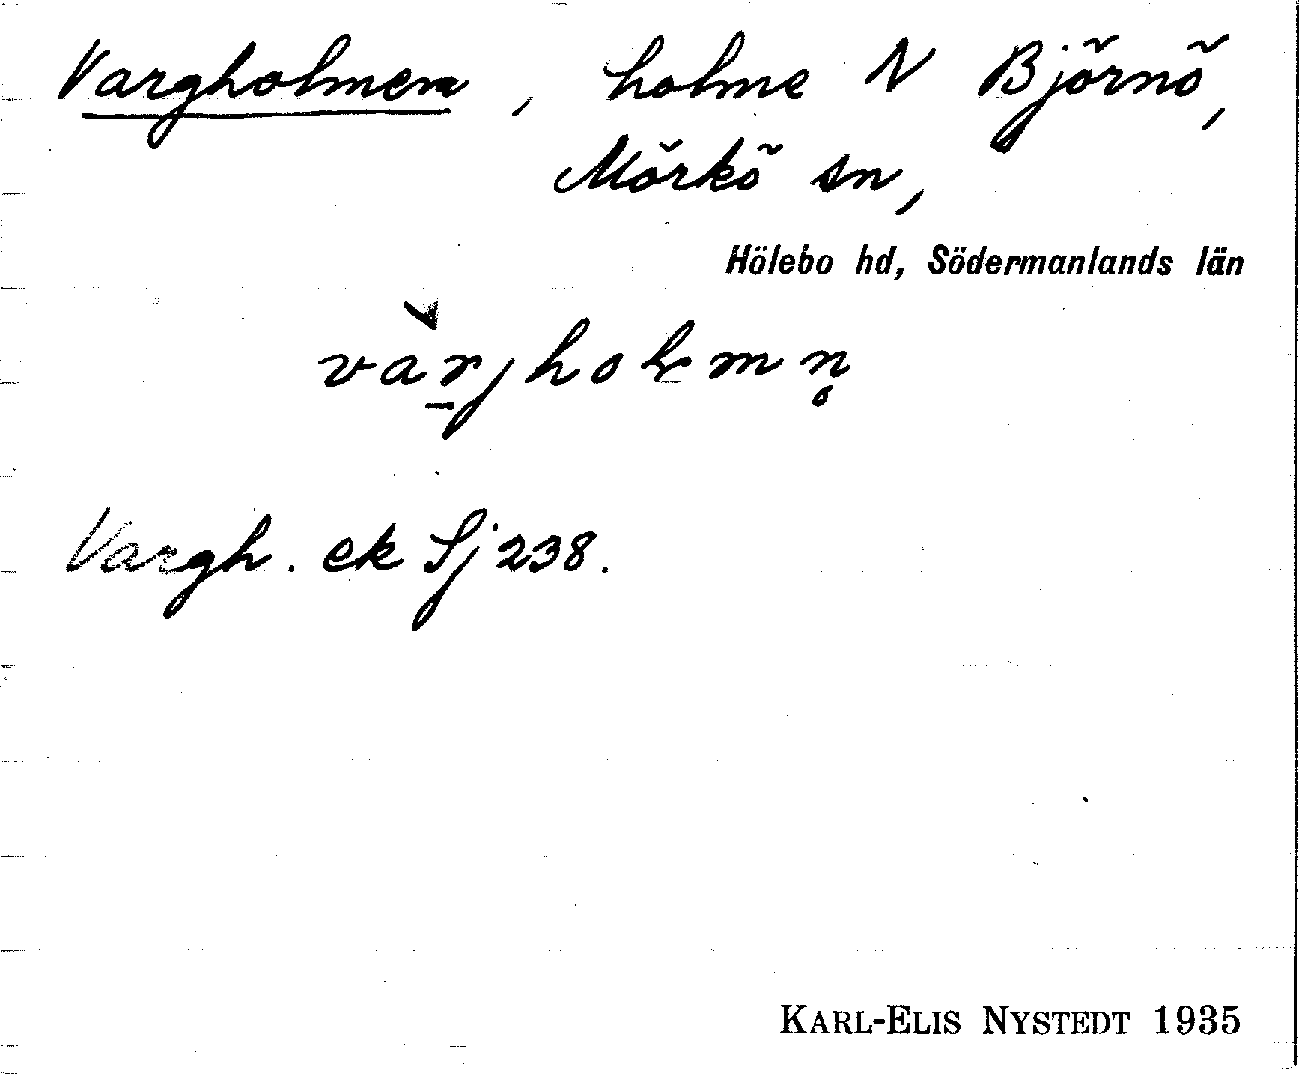 Vargholmen, holme N Björnö,
Mörkö sn,
Hölebo hd, Södermanlands län
vàr̠jholmn̥
Vargh. ek Sj 238.
KARL-ELIS NYSTEDT 1935